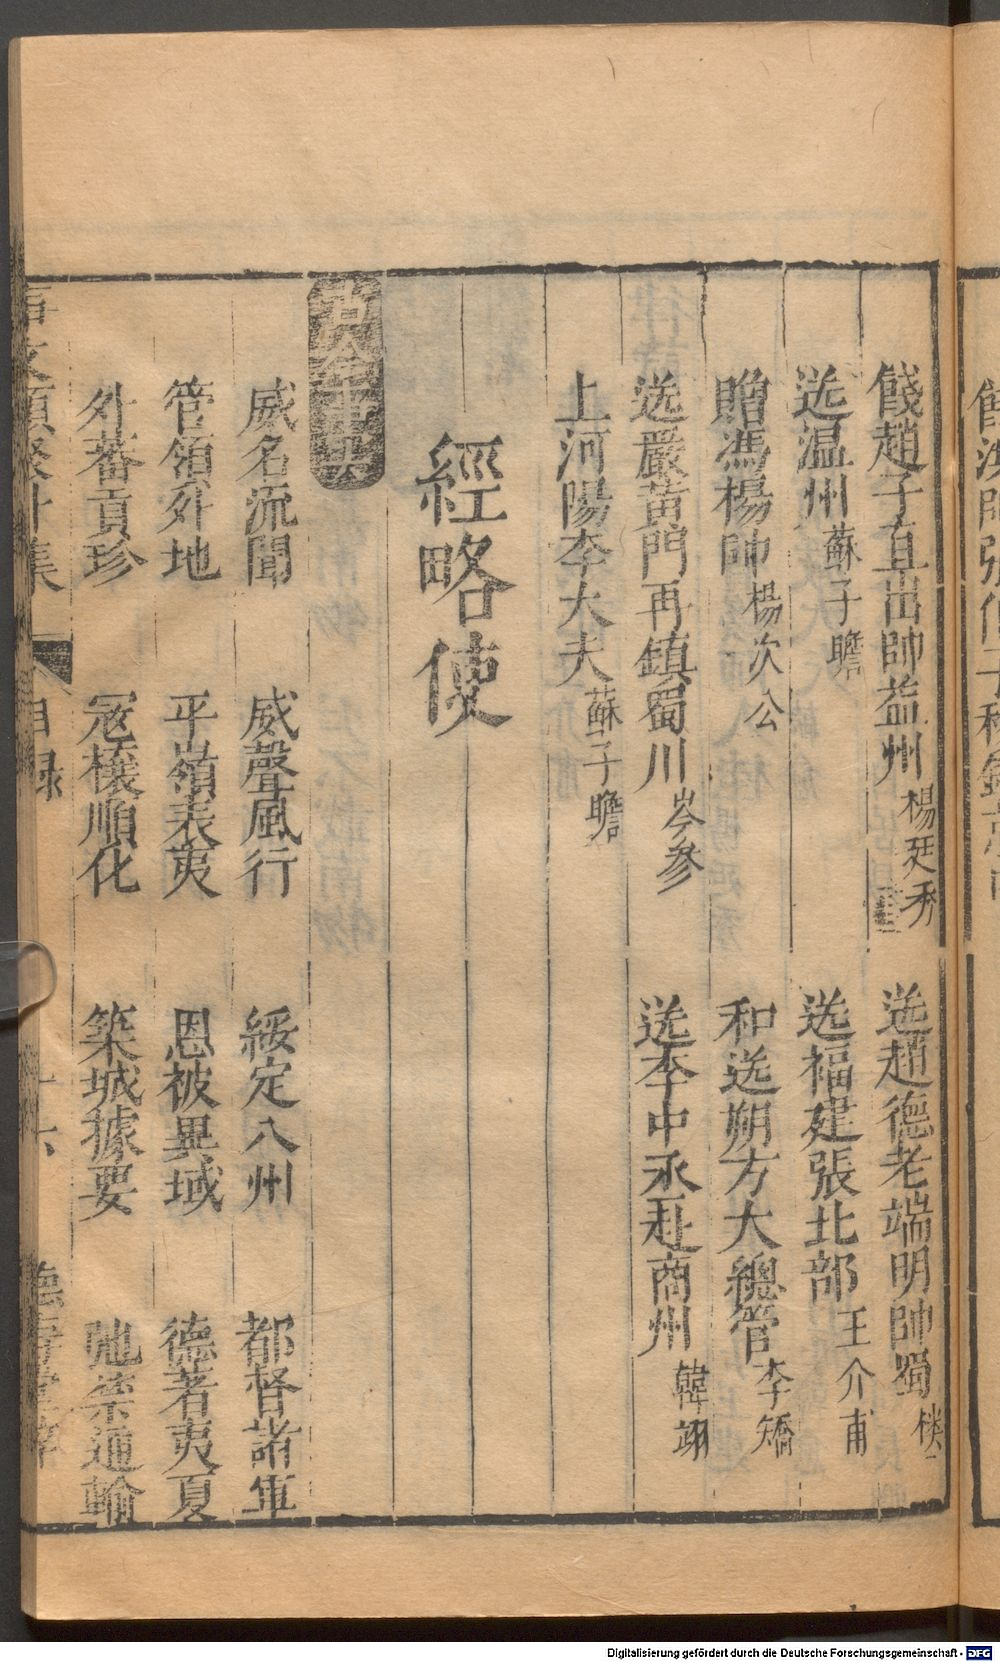 餞趙子直出帥益州 楊廷秀 送趙德老端明帥蜀
送温州 蘇子瞻 送福建張比部 王介甫
贈馮楊帥 楊次公 和送朔方大總管 李矯
送嚴黃門再鎮蜀川 岑參 送李中丞赴商州 韓翃
上河陽李大夫 蘇子瞻
經略使
古今事
威名流聞 威聲風行 綏定八州 都督諸軍
管領外地 平嶺表夷 恩被異域 德著夷夏
外蕃貢珍 冦攘順化 築城據要 弛禁通輸
事文類聚外集 目録 十六 德壽堂梓
Digitalisierung gefördert durch die Deutsche Forschungsgemeinschaft - DFG